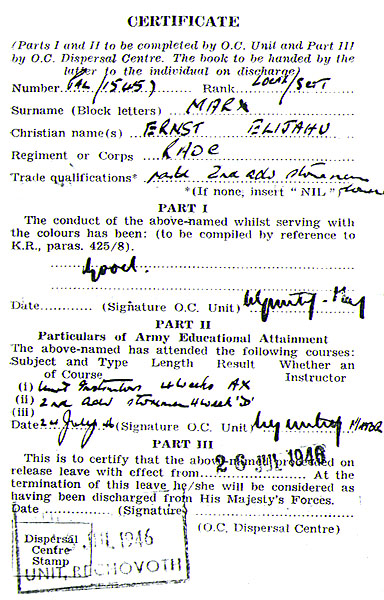 CERTIFICATE
(Parts I and II to be completed by O.C. Unit and Part III
by O.C. Dispersal Centre. The book to be handed by the
latter to the individual on discharge)
Number PAL/15457 Rank Local/Sgt
Surname (Block letters) MARX
Christian name(s) ERNST ELIJAHU
Regiment or Corps RAOC
Trade qualifications* 2nd adv storeman
*(If none, insert "NIL")
PART I
The conduct of the above-named whilst serving with
the colours has been: (to be compiled by reference to
K.R., paras. 425/8).
Good.
Date............ (Signature O.C. Unit)
PART II
Particulars of Army Educational Attainment
The above-named has attended the following courses:
Subject and Type Length Result Whether an
of Course Instructor
(i) Unit Instructors 4 weeks AX
(ii) 2nd adv storeman 4 week 'D'
(iii)
Date 24 July (Signature O.C. Unit)
PART III
This is to certify that the above-named proceeded on
release leave with effect from 26 JUL 1946 At the
termination of this leave he/she will be considered as
having been discharged from His Majesty's Forces.
Date ............ (Signature)
(O.C. Dispersal Centre)
Dispersal
Centre
Stamp
JUL 1946
UNIT, RECHOVOTH